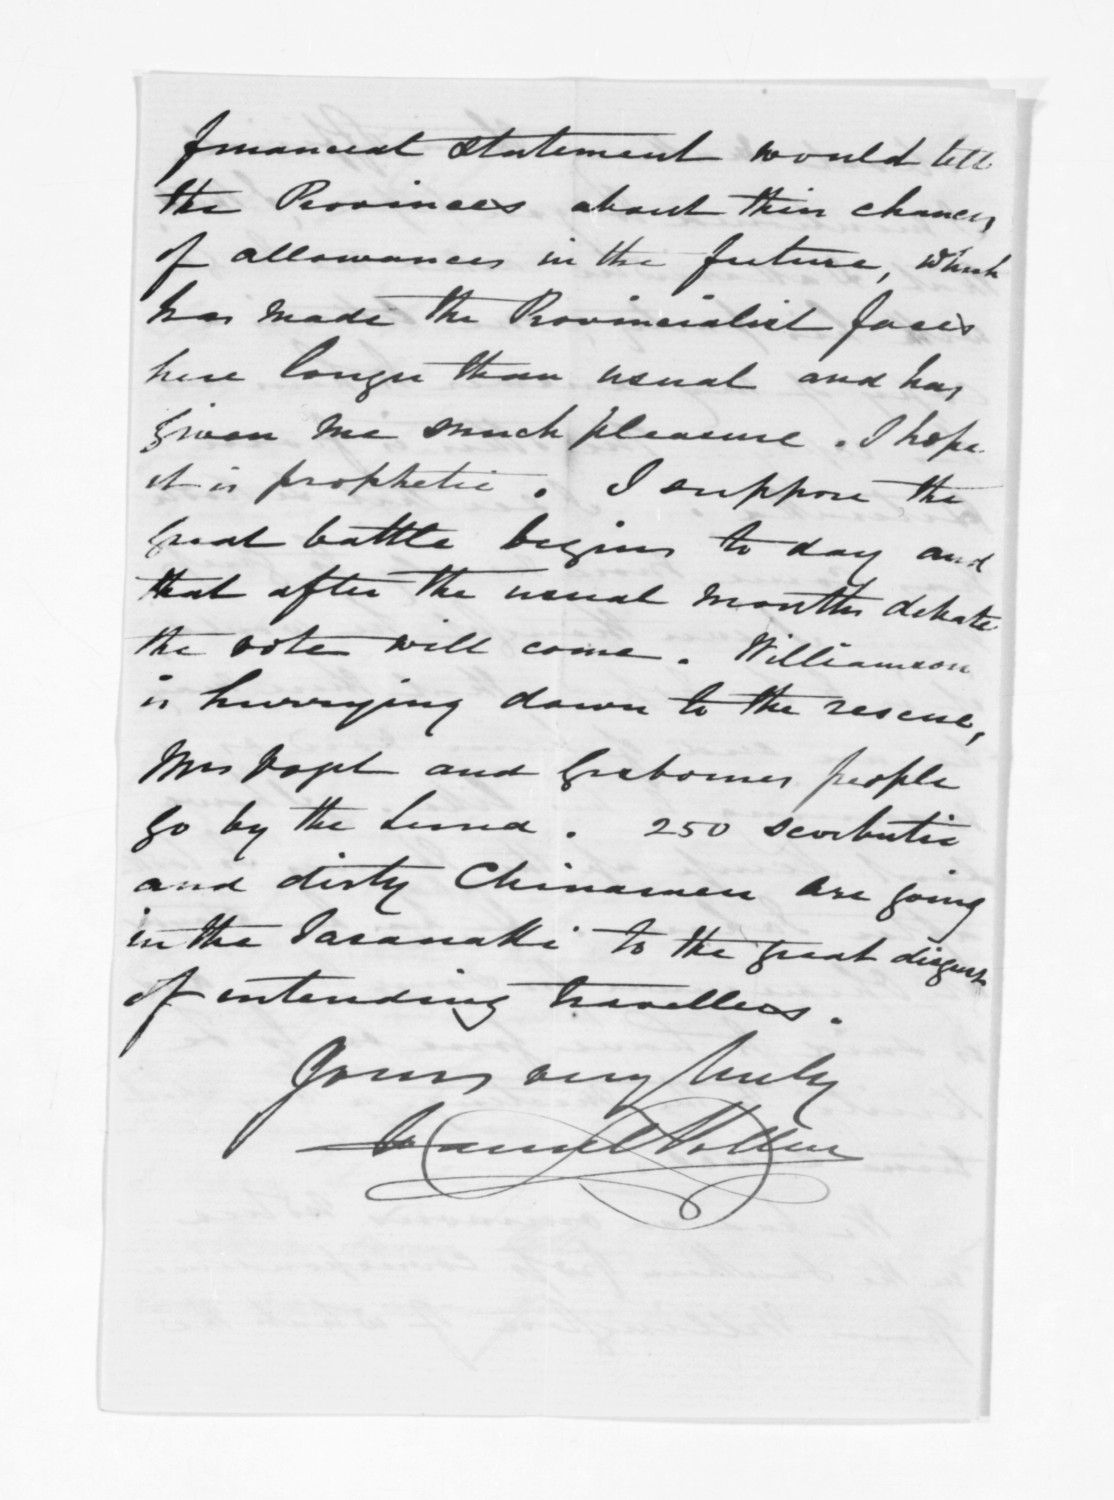 financial statement would tell
the Provinces about their chances
of allowances in the future, which
has made the Provincialist faces
here longer than usual and has
given me much pleasure. I hope
it is prophetic. I suppose the
great battle begins to day and
that after the usual months debate
the vote will come. Williamson
is hurrying down to the rescue,
Mrs Vogel and Gisbornes people
go by the Luna. 250 scorbutic
and dirty Chinamen are going
in the Taranaki to the great disgust
of intending travellers.
Yours very truly
Daniel Pollen